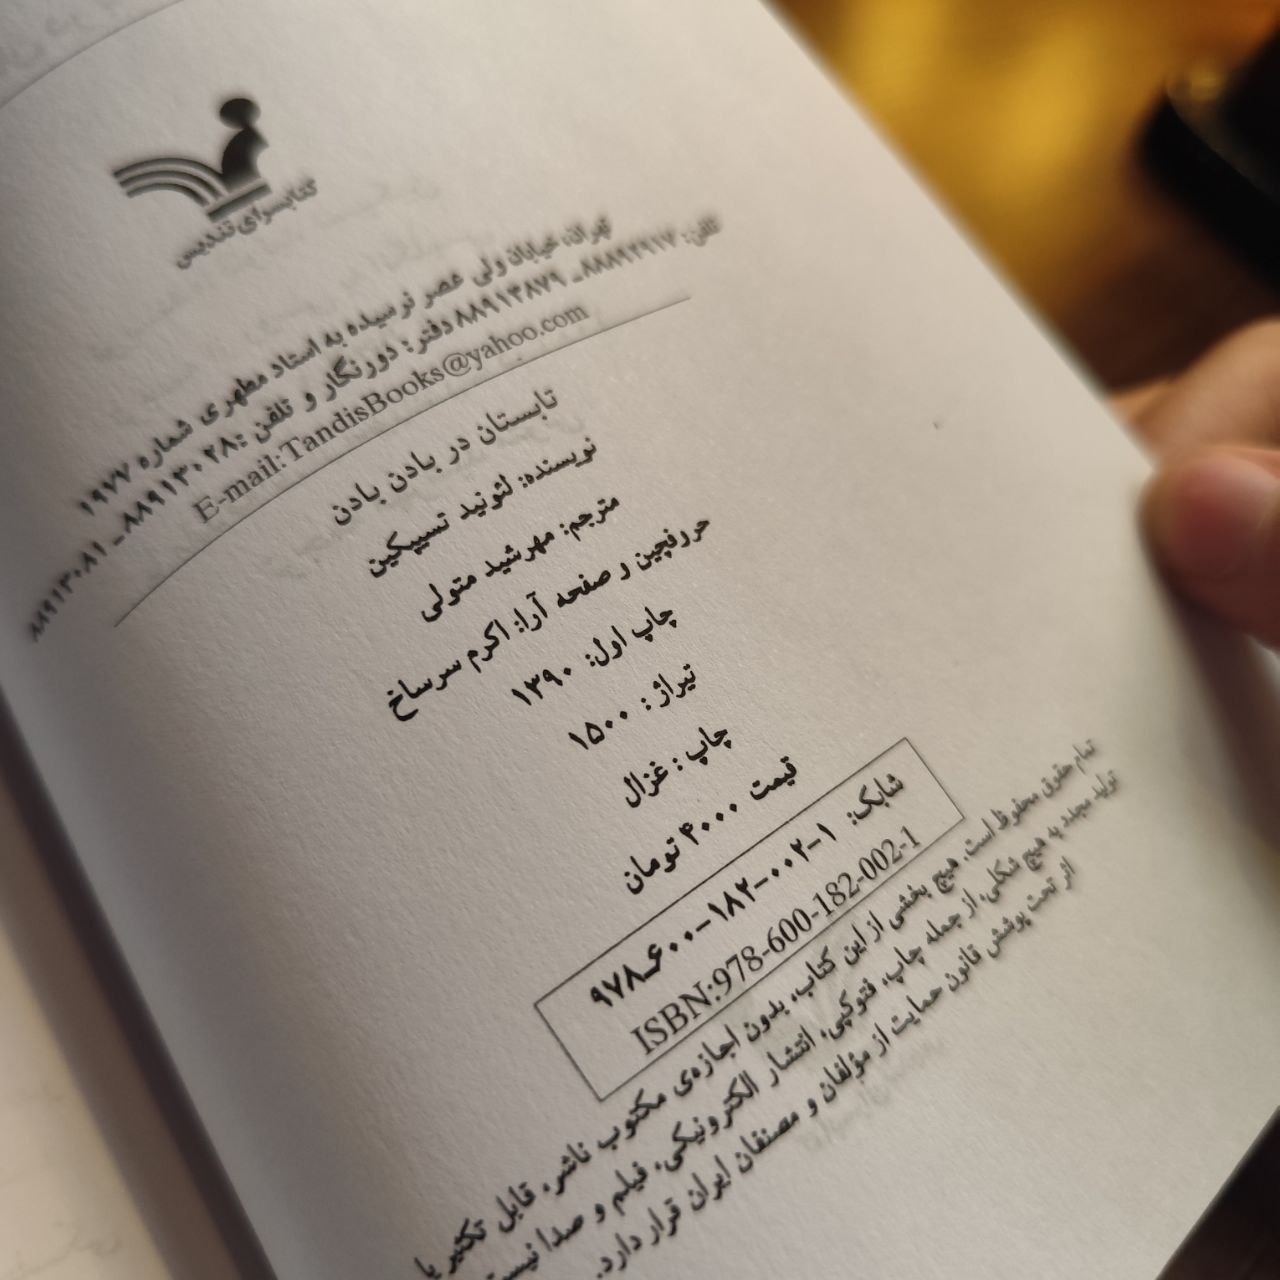 کتابسرای تندیس
تهران، خیابان ولی عصر نرسیده به استاد مطهری شماره ۱۹۷۷
تلفن: ۸۸۸۹۲۹۱۷ـ ۸۸۹۱۳۸۷۹ دفتر: دورنگار و تلفن :۸۸۹۱۳۰۲۸ ـ ۸۸۹۱۳۰۸۱
E-mail:TandisBooks@yahoo.com
تابستان در بادن بادن
نویسنده: لئونید تسیپکین
مترجم: مهرشید متولی
حروفچین و صفحه آرا: اکرم سرساخ
چاپ اول: ۱۳۹۰
تیراژ: ۱۵۰۰
چاپ : غزال
قیمت ۴۰۰۰ تومان
شابک: ۱-۰۰۲-۱۸۲-۶۰۰ـ۹۷۸
ISBN:978-600-182-002-1
تمام حقوق محفوظ است. هیچ بخشی از این کتاب، بدون اجازه‌ی مکتوب ناشر، قابل تکثیر یا
تولید مجدد به هیچ شکلی، از جمله چاپ، فتوکپی، انتشار الکترونیکی، فیلم و صدا نیست
اثر تحت پوشش قانون حمایت از مؤلفان و مصنفان ایران قرار دارد.